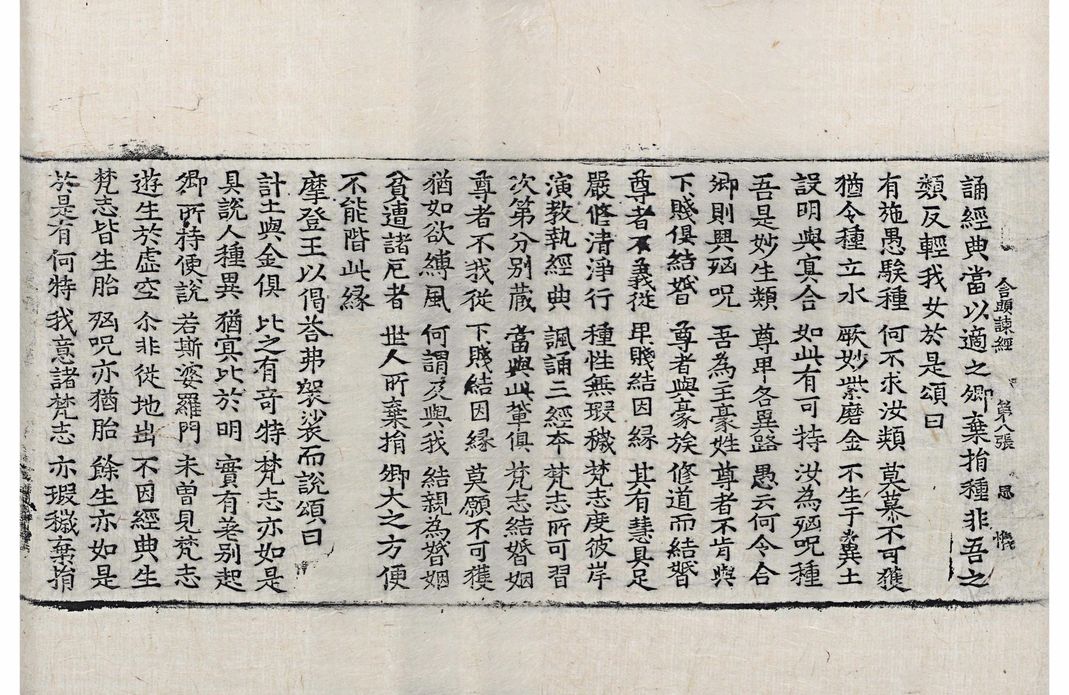 舍頭諫經 第八張 恩
誦經典當以適之卿棄捐種非吾之
類反輕我女於是頌曰
有施愚騃種 何不求汝類 莫慕不可獲
猶令種立水 厥妙紫磨金 不生于糞土
設明與冥合 如此有可持 汝為殈呪種
吾是妙生類 尊卑各異路 愚云何令合
卿則興殈呪 吾為至豪姓 尊者不肯與
下賤俱結婚 尊者與豪族 修道而結婚
尊者不義從 卑賤結因緣 其有慧具足
嚴修清淨行 種性無瑕穢 梵志度彼岸
演教執經典 諷誦三經本 梵志所可習
次第分別蔵 當與此輩俱 梵志結婚姻
尊者不我從 下賤結因緣 莫願不可獲
猶如欲縛風 何謂及與我 結親為婚姻
貧遭諸厄者 世人所棄捐 卿大之方便
不能階此緣
摩登王以偈荅弗袈裟而說頌曰
計土與金俱 比之有奇特 梵志亦如是
具說人種異 猶冥比於明 實有差別起
卿所持便說 若斯婆羅門 未曾見梵志
遊生於虛空 尒非從地出 不因經典生
梵志皆生胎 殈呪亦猶胎 餘生亦如是
於是有何特 我意諸梵志 亦瑕穢棄捐